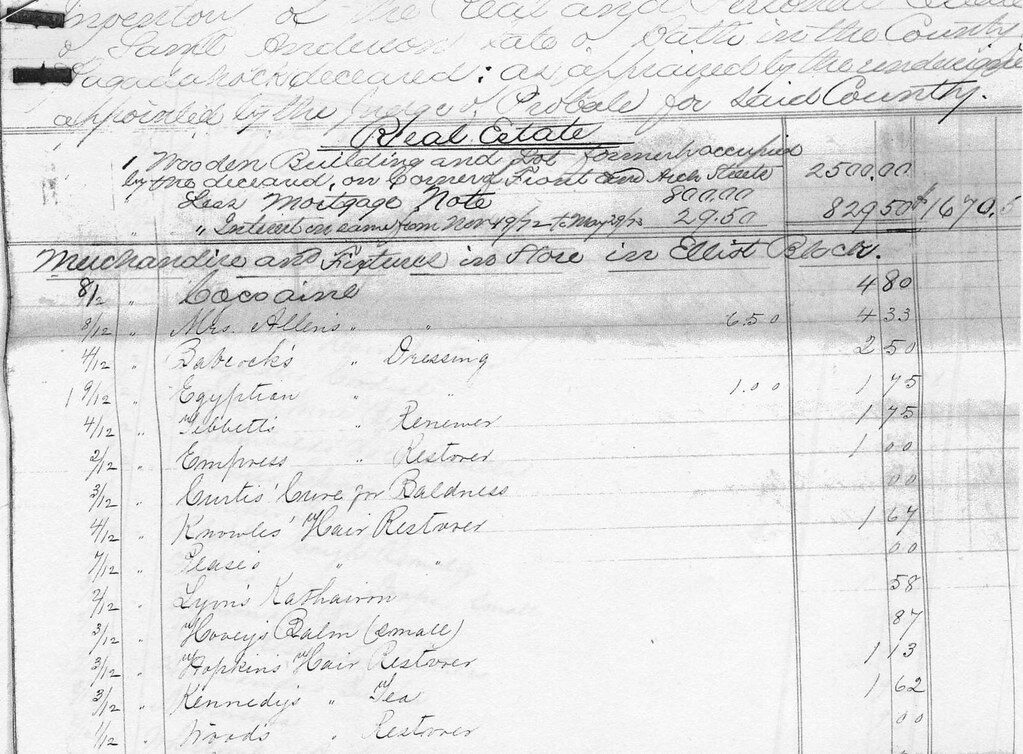 Inventory of the Real and Personal Estate
of Saml Anderson late of Bath in the County
Sagadahock deceased; as appraised by the undersigned
appointed by the Judge of Probate for said County.
Real Estate
1 Wooden Building and Lot formerly occupied
by the deceased, on Corner of Front and Arch Streets 2500.00
Less Mortgage Note 800.00
" Interest on same from Nov 19/72 to 29.50 829 50 $1670.5
Merchandise and Fixtures in Store in Elliot Block.
8/12 " Cocoaine 4 80
8/12 " Mrs. Allen's " " 6.50 4 33
4/12 " Babcock's " Dressing 2 50
1 9/12 " Egyptian " " 1.00 1 75
4/12 " Tibbetts " Renewer 1 75
2/12 " Empress " Restorer 1 00
3/12 " Curtis' Cure for Baldness 00
4/12 " Knowles' Hair Restorer 1 67
7/12 " Pease's " " 00
2/12 " Lyon's Kathairon 58
3/12 " Hovey's Balm (small) 87
3/12 " Hopkin's Hair Restorer 1 13
3/12 " Kennedy's " Tea 1 62
1/12 " Wood's Restorer 00